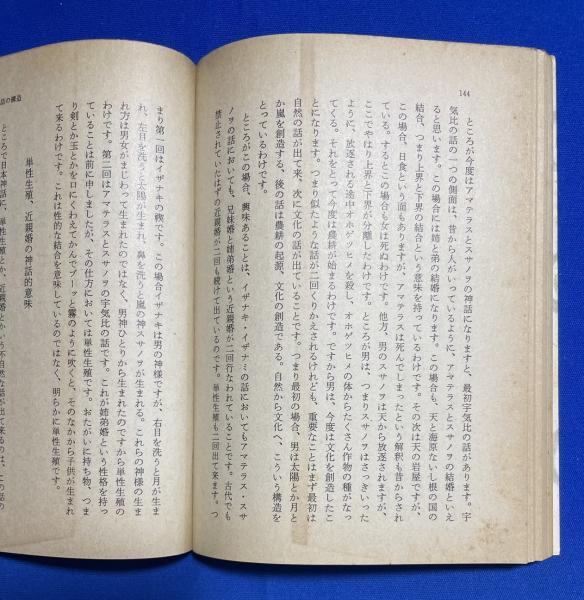 144
ところが今度はアマテラスとスサノヲの神話になりますと、最初宇気比の話があります。宇
気比の話の一つの側面は、昔から人がいっているように、アマテラスとスサノヲの結婚といえ
ると思います。この場合には姉と弟の結婚になります。この場合も、天と海原ないし根の国の
結合、つまり上界と下界の結合という意味を持っているわけです。その次は天の岩屋ですが、
この場合、日食という面もありますが、アマテラスは死んでしまったという解釈も昔からされ
ている。するとこの場合も女は死ぬわけです。他方、男のスサノヲは天から放逐されますが、
ここでやはり上界と下界が分離したわけです。ところが男は、つまりスサノヲはさっきいった
ように、放逐される途中オホゲツヒメを殺し、オホゲツヒメの体からたくさん作物の種がなっ
てくる。それをとって今度は農耕が始まるわけです。ですから男は、今度は文化を創造したこ
とになります。つまり似たような話が二回くりかえされるけれども、重要なことはまず最初は
自然の話が出て来、次に文化の話が出ていることです。つまり最初の場合、男は太陽とか月と
か嵐を創造する、後の話は農耕の起源、文化の創造である。自然から文化へ、こういう構造を
とっているわけです。
ところがこの場合、興味あることは、イザナキ・イザナミの話においてもアマテラス・スサ
ノヲの話においても、兄妹婚と姉弟婚という近親婚が二回行なわれていることです。古代でも
禁止されていたはずの近親婚が二回も続けて出ているのです。単性生殖も二回出て来ます。つ
話の構造
まり第一回はイザナキの禊です。この場合イザナキは男の神様ですが、右目を洗うと月が生ま
れ、左目を洗うと太陽が生まれ、鼻を洗うと嵐の神スサノヲが生まれる。これらの神様の生ま
れ方は男女がまじわって生まれたのではなく、男神ひとりから生まれたのですから単性生殖の
わけです。第二回はアマテラスとスサノヲの宇気比の話です。これが姉弟婚という性格を持っ
ていることは前に申しましたが、その仕方においては単性生殖です。おたがいに持ち物、つま
り剣とか玉とかを口にくわえてかんでプーッと霧のように吹くと、そのなかから子供が生まれ
て来るわけです。これは性的な結合を意味しているのではなく、明らかに単性生殖です。
単性生殖、近親婚の神話的意味
ところで日本神話に、単性生殖とか、近親婚とかいう不自然な話が出て来るのは、この話の